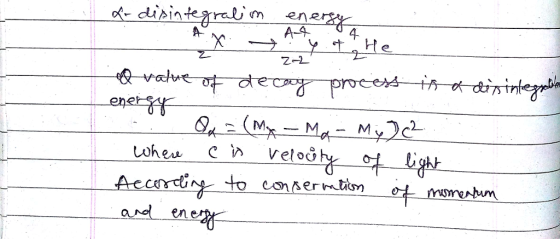 α- disintegration energy
ᴬ₂X → ᴬ⁻⁴Z-2 Y + ⁴₂He
Q value of decay process is α disintegration
energy
Qα = (Mx – Mα – My)c²
where c is velocity of light
According to conservation of momentum
and energy